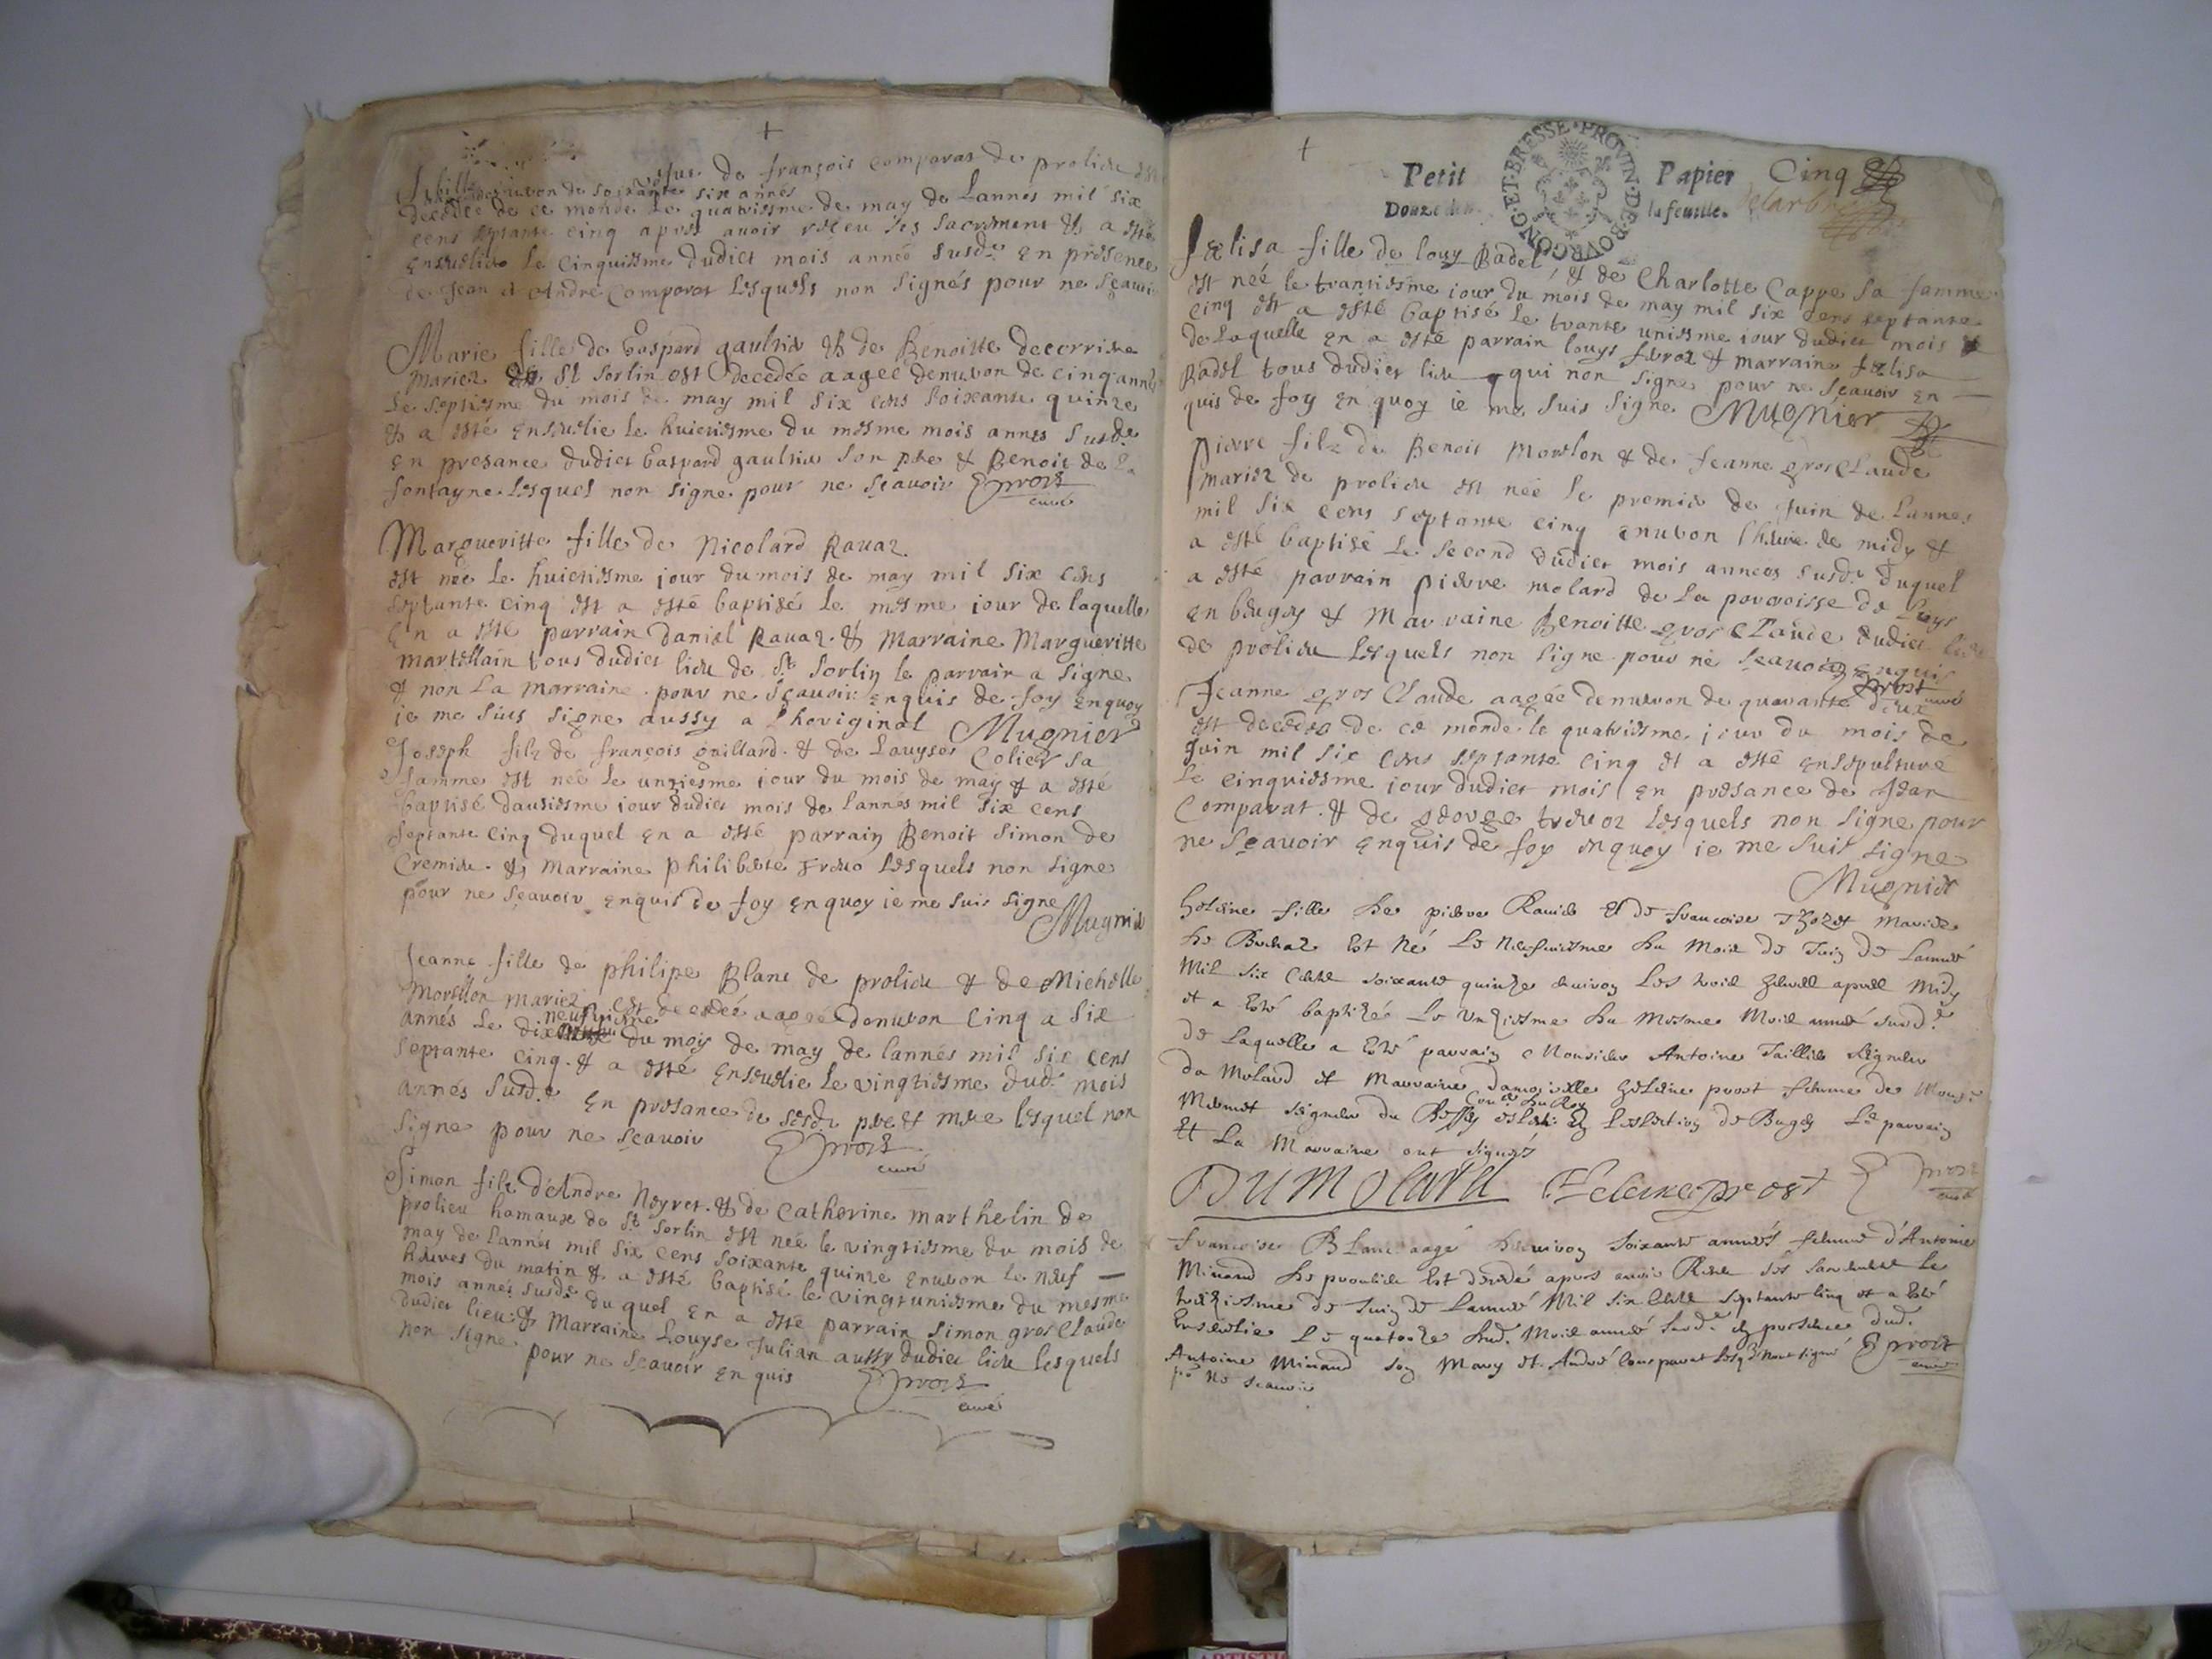 +
de françois comparat de prolieu
denviron de soixante six annés
decedee de ce monde le quatriesme de may de Lannés mil six
cens septante cinq apres avoir receu ses sacrement & a esté
ensevelie le cinquiesme dudict mois année susd.e en présence
de Jean et Andre Comparat lesquels non signés pour ne sçavoir
Marie fille de Gaspard gaultier & de Benoitte decorriere
mariez de St Sorlin est decedée aagee denviron de cinq annés
le septiesme du mois de may mil six cens soixante quinze
& a esté ensevelie le huictiesme du mesme mois annes susd.e
en presance dudict Gaspard gaultier son pere & Benoit de la
fontayne lesquel non signe pour ne sçavoir Eprost
curé
Margueritte fille de Nicolard Ravaz.
est née le huictiesme jour du mois de may mil six cens
septante cinq est a esté baptisée le mesme iour de laquelle
en a esté parrain Daniel Ravaz. & Marraine Margueritte
martellain tous dudict lieu de St Sorlin le parrain a signe
& non la marraine pour ne sçavoir enquis de foy enquoy
ie me suis signe aussy a Lhoriginal Mugnier
Joseph filz de françois gaillard. & de Louyse Colier sa
famme est née le unziesme iour du mois de may & a esté
baptisé dauziesme iour dudict mois de lannés mil six cens
septante cinq duquel en a esté parrain Benoit Simon de
Cremieu. & marraine philiberte lesquels non signe
pour ne sçavoir enquis de foy enquoy ie me suis signe
Mugnier
Jeanne fille de philipe Blanc de prolieu & de Michelle
Morellon mariez est decedée aagée denviron cinq a six
neufviesme
annés le dix du moys de may de lannés mil six cens
septante cinq. & a esté ensevelie le vingtiesme dud. mois
annés susd.e en presance de sesd. pere & mere lesquel non
signe pour ne sçavoir Eprost
curé
Simon filz d'Andre Neyret. & de Catherine marthelin de
prolieu hamaux de St Sorlin est née le vingtiesme du mois de
may de lannés mil six cens soixante quinze environ le neuf —
heures du matin & a esté baptisé le vingtuniesme du mesme
mois annés susd.e du quel en a esté parrain simon gros Claude
dudict lieu. & Marraine Louyse Julian aussy dudict lieu lesquels
non signe pour ne sçavoir en quis Eprost
curé
+
Petit Papier Cinq
Douze la feuille.
BOVRGONG·ET·BRESSE·PROVIN·DE
Felisa fille de louy Badel, & de Charlotte Cappe sa famme
est née le trantiesme iour du mois de may mil six cens septante
cinq est a esté baptisé le trante uniesme iour dudict mois
de laquelle en a esté parrain louys & marraine felisa
Badel tous dudict lieu qui non signe pour ne sçavoir en —
quis de foy en quoy ie me suis signe Mugnier
Pierre filz de Benoit Morelon & de Jeanne gros Claude
mariez de prolieu est née le premier de Juin de Lannes
mil six cens septante cinq environ lheure de midy &
a esté baptisé le second dudict mois annees susd.e duquel
a esté parrain pierre molard de la parroisse de
en beugey & Marraine Benoitte gros Claude dudict lieu
de prolieu lesquels non signe pour ne sçavoir enquis
Eprost curé
Jeanne gros Claude aagée denviron de quarante deux
est decedee de ce monde le quatriesme jour du mois de
Juin mil six cens septante cinq et a esté ensepulturé
le cinquiesme iour dudict mois en presance de Jean
Comparat. & de george lesquels non signe pour
ne sçavoir enquis de foy enquoy ie me suis signe
Mugnier
heleine fille de pierre Ravier et de francoise mariés
de est né le neufviesme du mois de Juin de Lanneé
Mil six cents soixante quinze environ les trois heures apres midy
et a esté baptizée le unziesme du mesme mois anneé susd.e
de Laquelle a esté parrain Monsieur Antoine Taillier seigneur
du Molard et marraine damoiselle heleine prost femme de Mons.r
Coner du Roy
seigneur du en Leslection de Bugey Le parrain
Et La Marraine ont signés
Dumolard Heleine prost Eprost
curé
francoise Blanc aagé denviron soixante années femme d'Antoine
Minand de proulieu est decedé apres avoir Receu ses sacrements le
treziesme de Juin de Lanneé Mil six cents septante cinq et a esté
Ensevelie le quatorze dud. mois anneé susd.e en presence dud.
Antoine Minand son Mary et André Comparat lesq.ls nont signé Eprost
curé
p.r ne scavoir